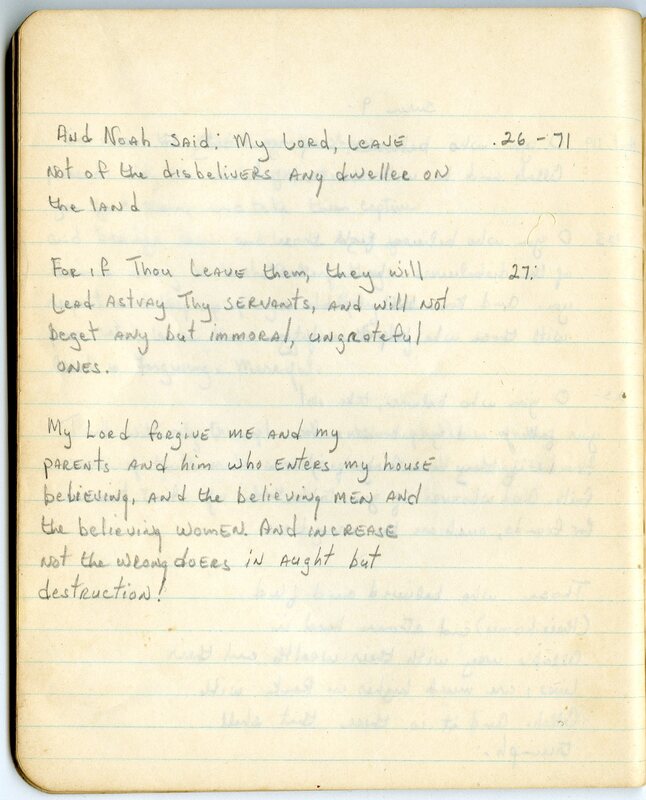 And Noah said; My Lord, leave .26 - 71
not of the disbelivers any dweller on
the land
For if Thou leave them, they will 27.
Lead astray Thy servants, and will not
beget any but immoral, ungrateful
ones.
My Lord forgive me and my
parents and him who enters my house
believing, and the believing men and
the believing women. And increase
not the wrongdoers in aught but
destruction!